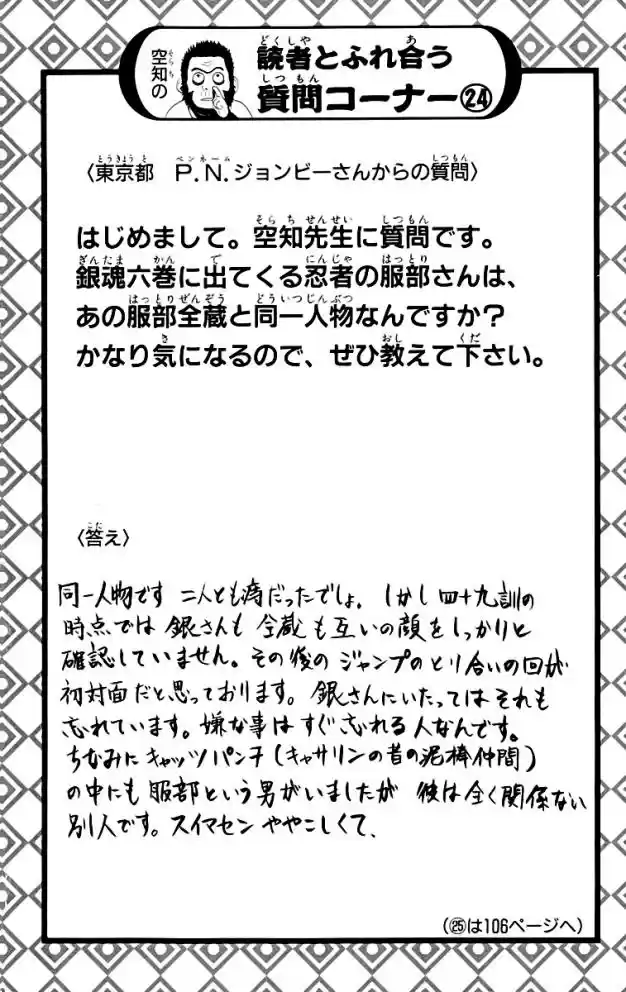 空知の
読者とふれ合う
質問コーナー㉔
〈東京都 P.N.ジョンビーさんからの質問〉
はじめまして。空知先生に質問です。
銀魂六巻に出てくる忍者の服部さんは、
あの服部全蔵と同一人物なんですか?
かなり気になるので、ぜひ教えて下さい。
〈答え〉
同一人物です 二人とも痔だったでしょ。しかし四十九訓の
時点では 銀さんも 全蔵も互いの顔をしっかりと
確認していません。その後の ジャンプのとり合いの回が
初対面だと思っております。銀さんにいたってはそれも
忘れています。嫌な事は すぐ忘れる人なんです。
ちなみに キャッツパンチ(キャサリンの昔の泥棒仲間)
の中にも 服部という男がいましたが 彼は全く関係ない
別人です。スイマセン ややこしくて、
(㉕は106ページへ)